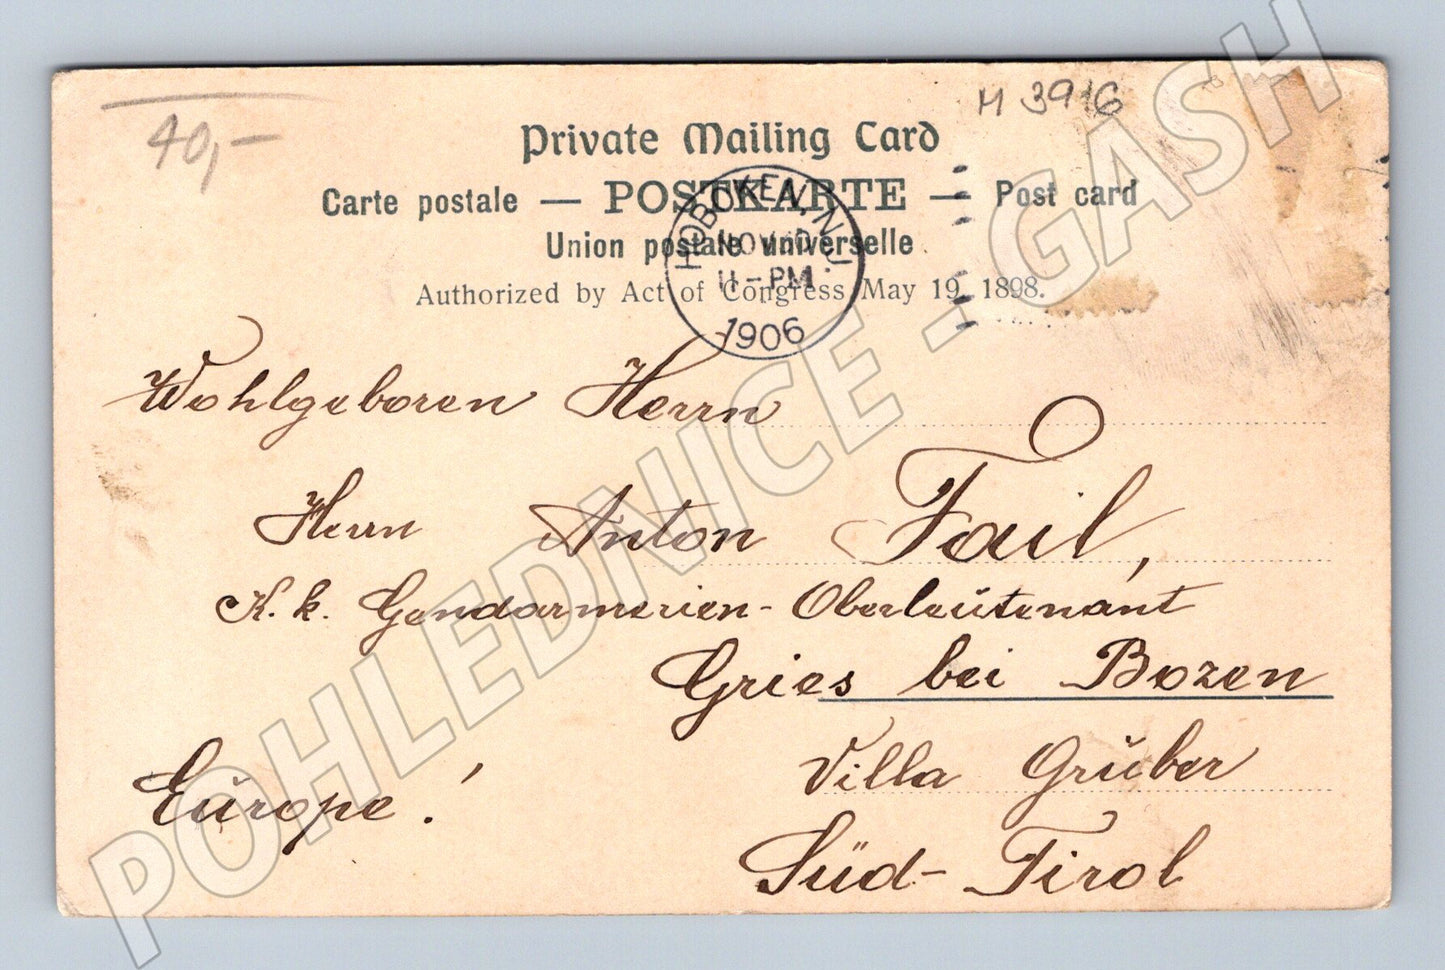 40,-
M 3916
Private Mailing Card
Carte postale — POSTKARTE — Post card
Union postale universelle
Authorized by Act of Congress May 19, 1898.
HOBOKEN, N.J.
NOV
11-PM
1906
Wohlgeboren Herrn
Herrn Anton Fail,
K. k. Gendarmerien-Oberleutenant
Gries bei Bozen
Villa Gruber
Europe!
Süd-Tirol
POHLEDNICE - GASH